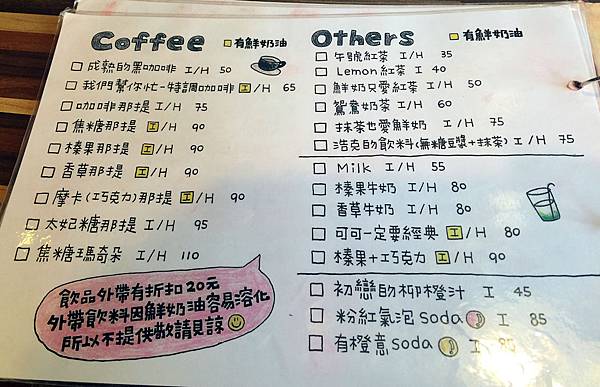 Coffee □有鮮奶油
□ 成熟的黑咖啡 I/H 50
□ 我們幫你忙-特調咖啡 I/H 65
□ 咖啡那提 I/H 75
□ 焦糖那提 I/H 90
□ 榛果那提 I/H 90
□ 香草那提 I/H 90
□ 摩卡(巧克力)那提 I/H 90
□ 太妃糖那提 I/H 95
□ 焦糖瑪奇朵 I/H 110
飲品外帶有折扣20元
外帶飲料因鮮奶油容易溶化
所以不提供敬請見諒
Others □有鮮奶油
□ 午號紅茶 I/H 35
□ Lemon紅茶 I 40
□ 鮮奶只愛紅茶 I/H 50
□ 鴛鴦奶茶 I/H 60
□ 抹茶也愛鮮奶 I/H 75
□ 浩克的飲料(無糖豆漿+抹茶) I/H 75
□ Milk I/H 55
□ 榛果牛奶 I/H 80
□ 香草牛奶 I/H 80
□ 可可一定要經典 I/H 80
□ 榛果+巧克力 I/H 90
□ 初戀的柳橙汁 I 45
□ 粉紅氣泡Soda I 85
□ 有橙意Soda I 85